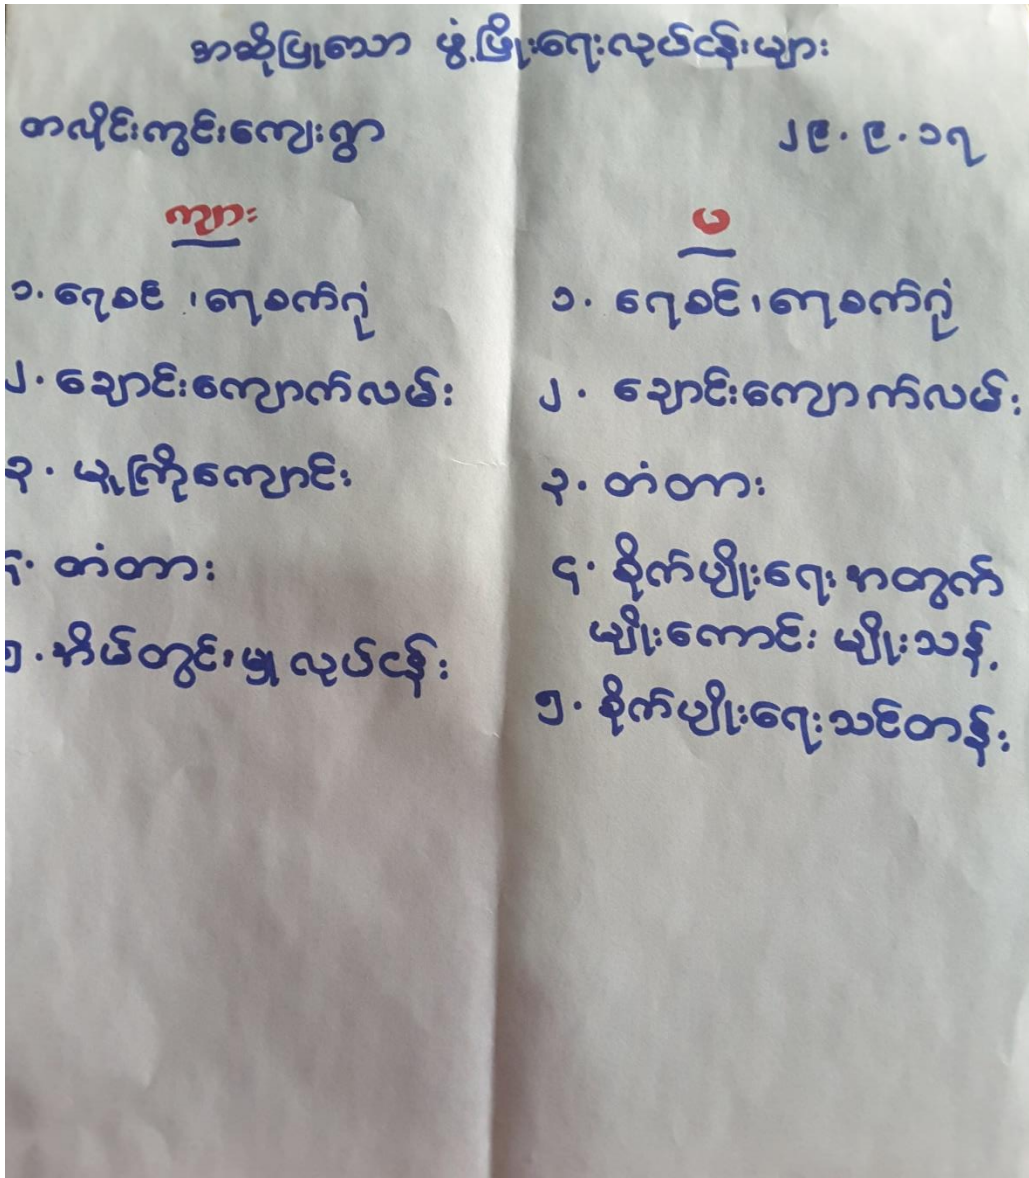 အဆိုပြုသော ဖွံ့ဖြိုးရေးလုပ်ငန်းများ
တလိုင်းကွင်းကျေးရွာ ၂၉.၉.၁၇
ကျား
၁. ရေစင် ၊ ရေစက်ရုံ
၂. ချောင်းကျောက်လမ်း
၃. မူကြိုကျောင်း
၄. တံတား
၅. အိမ်တွင်းမှု လုပ်ငန်း
မ
၁. ရေစင် ၊ ရေစက်ရုံ
၂. ချောင်းကျောက်လမ်း
၃. တံတား
၄. စိုက်ပျိုးရေး အတွက်
မျိုးကောင်း မျိုးသန့်
၅. စိုက်ပျိုးရေးသင်တန်း